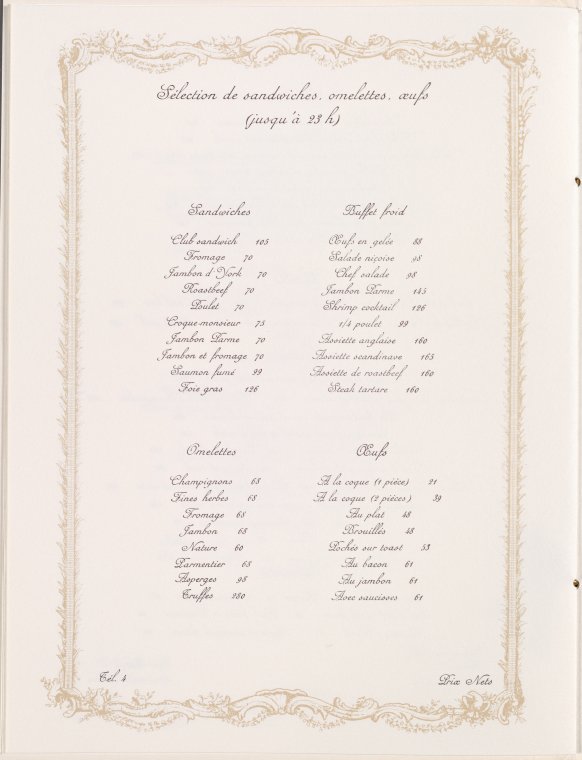 Sélection de sandwiches, omelettes, œufs
(jusqu'à 23 h)
Sandwiches
Club sandwich 105
Fromage 70
Jambon d'York 70
Roastbeef 70
Poulet 70
Croque-monsieur 75
Jambon Parme 70
Jambon et fromage 70
Saumon fumé 99
Foie gras 126
Buffet froid
Œufs en gelée 88
Salade niçoise 98
Chef salade 98
Jambon Parme 145
Shrimp cocktail 126
1/4 poulet 99
Assiette anglaise 160
Assiette scandinave 165
Assiette de roastbeef 160
Steak tartare 160
Omelettes
Champignons 68
Fines herbes 68
Fromage 68
Jambon 68
Nature 60
Parmentier 68
Asperges 98
Truffes 280
Œufs
A la coque (1 pièce) 21
A la coque (2 pièces) 39
Au plat 48
Brouillés 48
Pochés sur toast 53
Au bacon 61
Au jambon 61
Avec saucisses 61
Tél. 4
Prix Nets